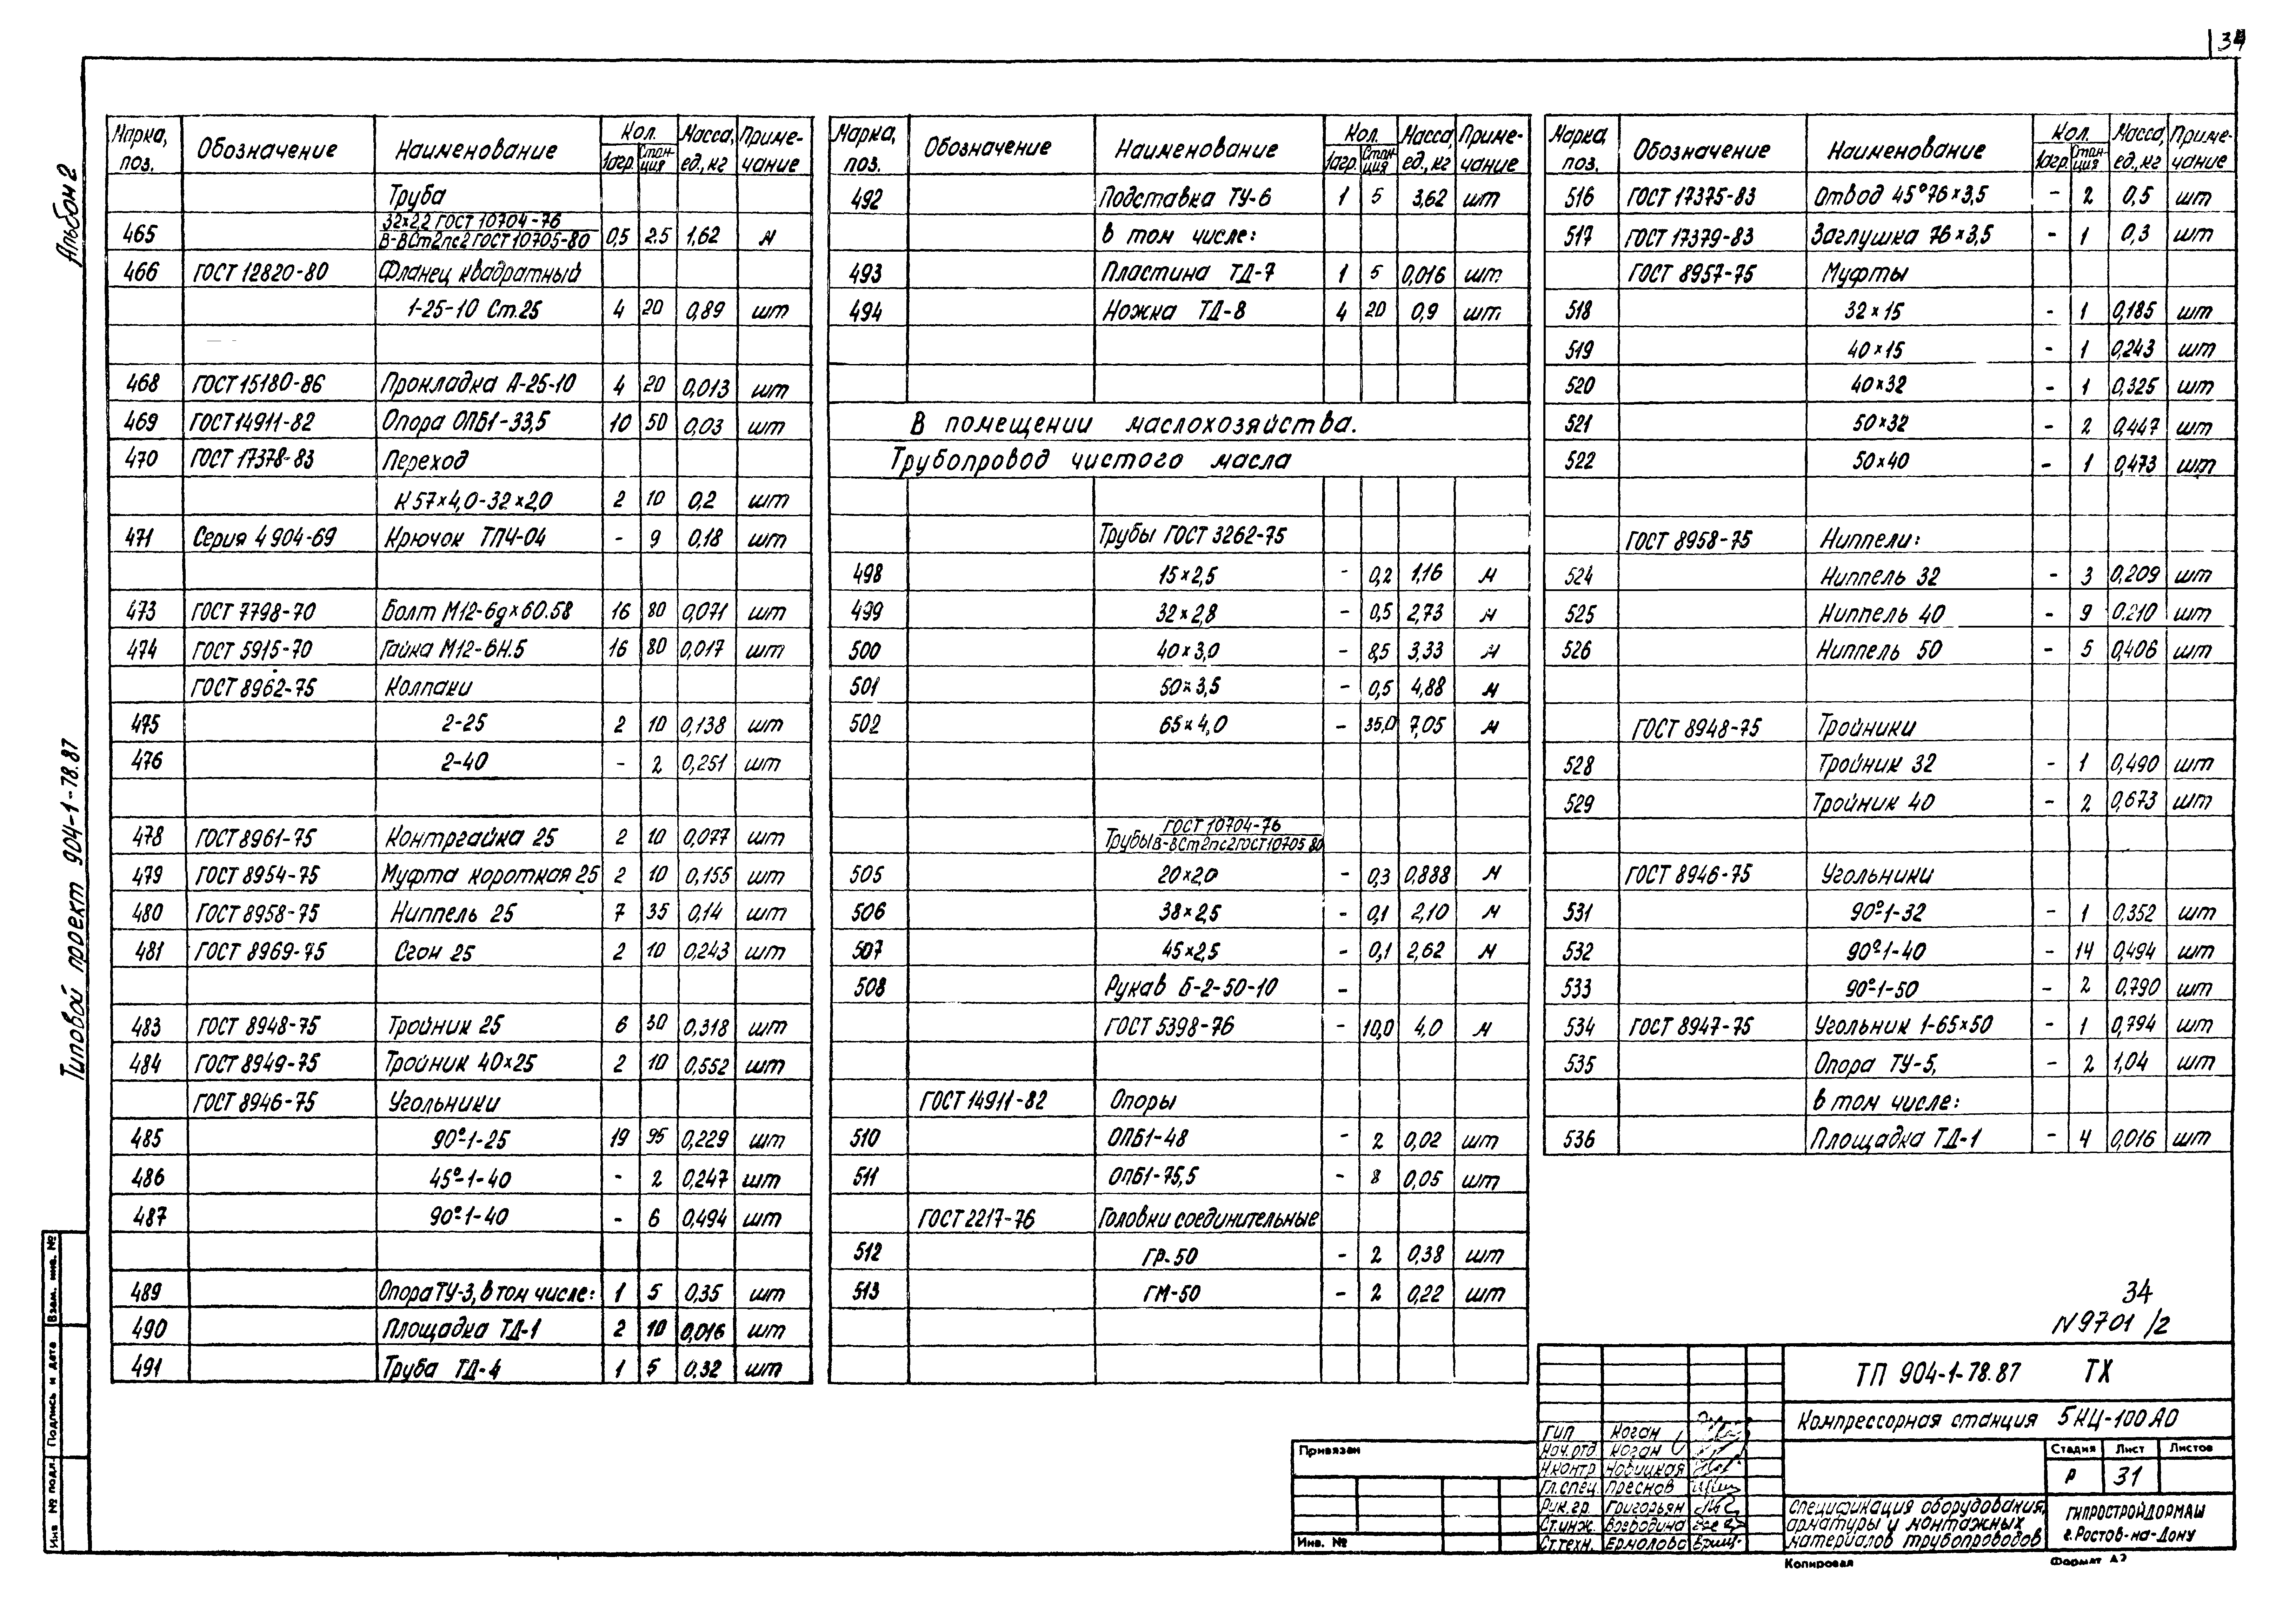 34
Альбом 2
Типовой проект 904-1-78.87
Взам. инв. №
Подпись и дата
Инв № подл.
Марка, поз. Обозначение Наименование Кол. 1агр. Станция Масса, ед., кг Примечание
Труба
465 32х2,2 ГОСТ 10704-76 / В-ВСт2пс2 ГОСТ 10705-80 0,5 2.5 1,62 м
466 ГОСТ 12820-80 Фланец квадратный
1-25-10 Ст.25 4 20 0,89 шт
468 ГОСТ 15180-86 Прокладка А-25-10 4 20 0,013 шт
469 ГОСТ 14911-82 Опора ОПБ1-33,5 10 50 0,03 шт
470 ГОСТ 17378-83 Переход
К 57×4,0-32×2,0 2 10 0,2 шт
471 Серия 4 904-69 Крючок ТПЧ-04 - 9 0,18 шт
473 ГОСТ 7798-70 Болт М12-6g×60.58 16 80 0,071 шт
474 ГОСТ 5915-70 Гайка М12-6Н.5 16 80 0,017 шт
ГОСТ 8962-75 Колпаки
475 2-25 2 10 0,138 шт
476 2-40 - 2 0,251 шт
478 ГОСТ 8961-75 Контргайка 25 2 10 0,077 шт
479 ГОСТ 8954-75 Муфта короткая 25 2 10 0,155 шт
480 ГОСТ 8958-75 Ниппель 25 7 35 0,14 шт
481 ГОСТ 8969-75 Сгон 25 2 10 0,243 шт
483 ГОСТ 8948-75 Тройник 25 6 30 0,318 шт
484 ГОСТ 8949-75 Тройник 40×25 2 10 0,552 шт
ГОСТ 8946-75 Угольники
485 90°-1-25 19 95 0,229 шт
486 45°-1-40 - 2 0,247 шт
487 90°-1-40 - 6 0,494 шт
489 Опора ТУ-3, в том числе: 1 5 0,35 шт
490 Площадка ТД-1 2 10 0,016 шт
491 Труба ТД-4 1 5 0.32 шт
Марка, поз. Обозначение Наименование Кол. 1агр. Станция Масса ед., кг Примечание
492 Подставка ТУ-6 1 5 3,62 шт
в том числе:
493 Пластина ТД-7 1 5 0,016 шт.
494 Ножка ТД-8 4 20 0,9 шт.
В помещении маслохозяйства.
Трубопровод чистого масла
Трубы ГОСТ 3262-75
498 15×2,5 - 0,2 1,16 м
499 32×2,8 - 0,5 2,73 м
500 40×3,0 - 8,5 3,33 м
501 50×3,5 - 0,5 4,88 м
502 65×4,0 - 35,0 7,05 м
Трубы ГОСТ 10704-76 / В-ВСт2пс2ГОСТ10705 80
505 20×2,0 - 0,3 0,888 м
506 38×2,5 - 0,1 2,10 м
507 45×2,5 - 0,1 2,62 м
508 Рукав Б-2-50-10 -
ГОСТ 5398-76 - 10,0 4,0 м
ГОСТ 14911-82 Опоры
510 ОПБ1-48 - 2 0,02 шт
511 ОПБ1-75,5 - 8 0,05 шт
ГОСТ 2217-76 Головки соединительные
512 ГР-50 - 2 0,38 шт
513 ГМ-50 - 2 0,22 шт
Марка, поз. Обозначение Наименование Кол. 1агр. Станция Масса, ед., кг Примечание
516 ГОСТ 17375-83 Отвод 45°76×3,5 - 2 0,5 шт
517 ГОСТ 17379-83 Заглушка 76×3,5 - 1 0,3 шт
ГОСТ 8957-75 Муфты
518 32×15 - 1 0,185 шт
519 40×15 - 1 0,243 шт
520 40×32 - 1 0,325 шт
521 50×32 - 2 0,447 шт
522 50×40 - 1 0,473 шт
ГОСТ 8958-75 Ниппели:
524 Ниппель 32 - 3 0,209 шт
525 Ниппель 40 - 9 0.210 шт
526 Ниппель 50 - 5 0,406 шт
ГОСТ 8948-75 Тройники
528 Тройник 32 - 1 0,490 шт
529 Тройник 40 - 2 0,673 шт
ГОСТ 8946-75 Угольники
531 90°-1-32 - 1 0,352 шт
532 90°-1-40 - 14 0,494 шт
533 90°-1-50 - 2 0,790 шт
534 ГОСТ 8947-75 Угольник 1-65×50 - 1 0,794 шт
535 Опора ТУ-5, - 2 1,04 шт
в том числе:
536 Площадка ТД-1 - 4 0,016 шт
34
N9701/2
ТП 904-1-78.87 ТХ
Компрессорная станция 5КЦ-100 АО
Стадия Лист Листов
Р 31
Спецификация оборудования, арматуры и монтажных материалов трубопроводов
ГИПРОСТРОЙДОРМАШ
г. Ростов-на-Дону
ГИП Коган
Нач.отд Коган
Н.контр Новицкая
Гл.спец. Преснов
Рук.гр. Григорьян
Ст.инж.
Ст.техн. Ермолова
Привязан
Инв. №
Копировал
Формат А2